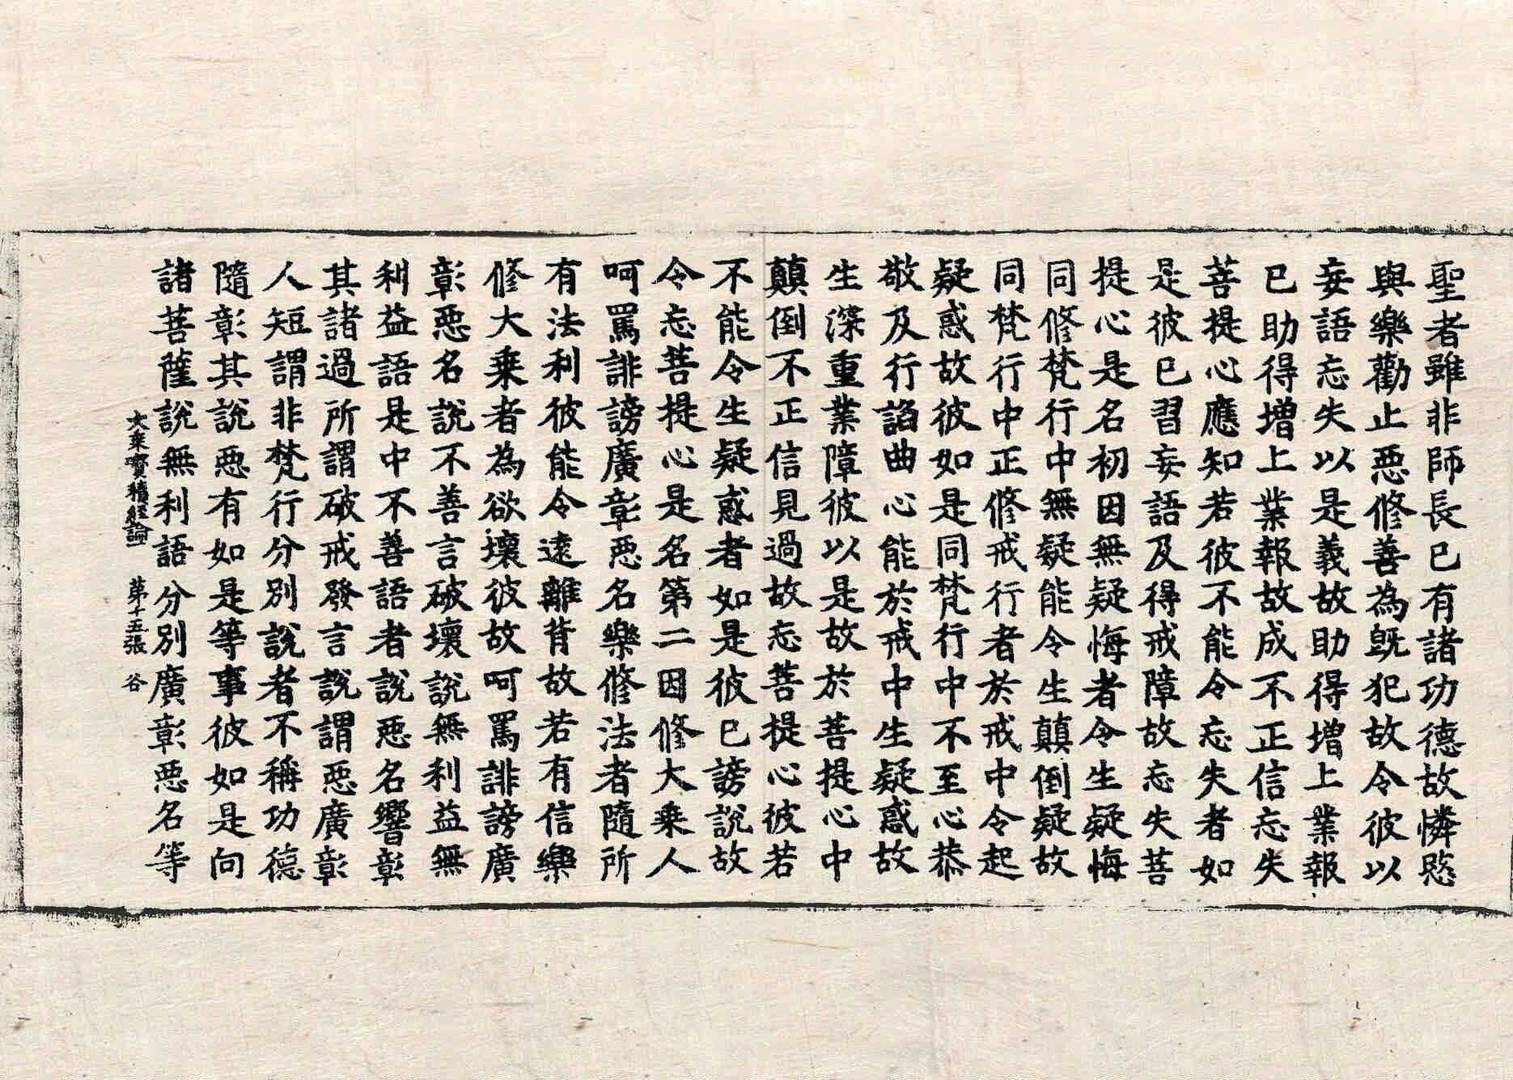 聖者雖非師長已有諸功德故憐愍
與樂勸止惡修善為旣犯故令彼以
妄語忘失以是義故助得增上業報
已助得增上業報故成不正信忘失
菩提心應知若彼不能令忘失者如
是彼已習妄語及得戒障故忘失菩
提心是名初因無疑悔者令生疑悔
同修梵行中無疑能令生顛倒疑故
同梵行中正修戒行者於戒中令起
疑惑故彼如是同梵行中不至心恭
敬及行諂曲心能於戒中生疑惑故
生深重業障彼以是故於菩提心中
顛倒不正信見過故忘菩提心彼若
不能令生疑惑者如是彼已謗說故
令忘菩提心是名第二因修大乘人
呵罵誹謗廣彰惡名樂修法者隨所
有法利彼能令遠離背故若有信樂
修大乘者為欲壞彼故呵罵誹謗廣
彰惡名說不善言破壞說無利益無
利益語是中不善語者說惡名響彰
其諸過所謂破戒發言說謂惡廣彰
人短謂非梵行分別說者不稱功德
隨彰其說惡有如是等事彼如是向
諸菩薩說無利語分別廣彰惡名等
大乘寶積經論一 第十五張 谷